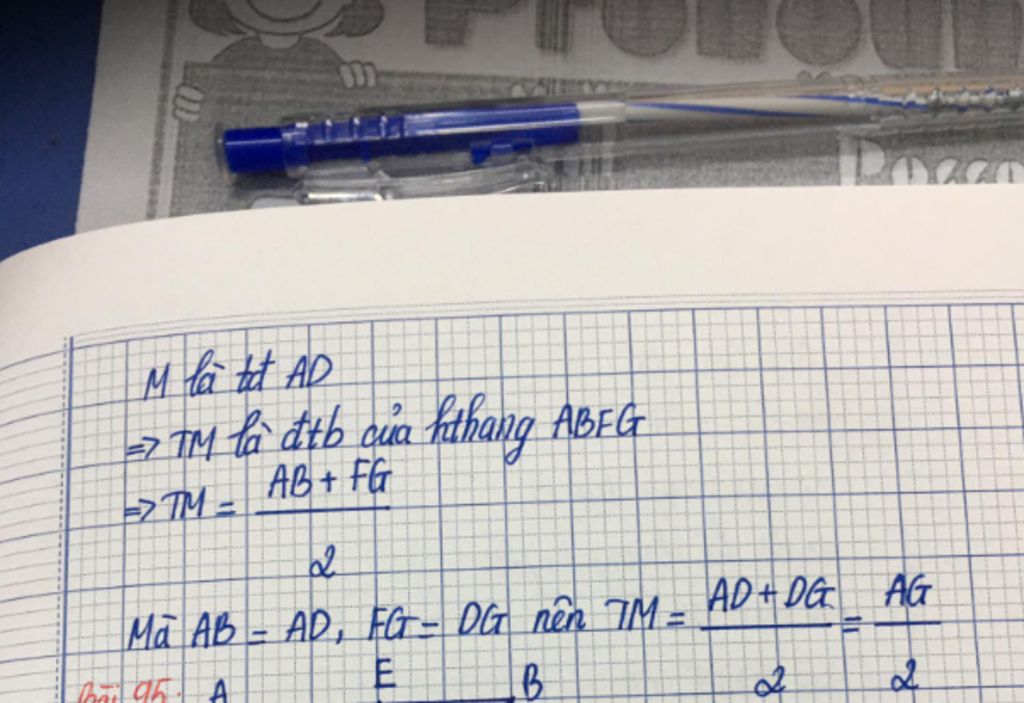 Pronoun
Posse
M là td AD
=> TM là đtb của hthang ABFG
=> TM = AB + FG / 2
Mà AB = AD, FG = DG nên TM = AD + DG / 2 = AG / 2
bài 95. A E B